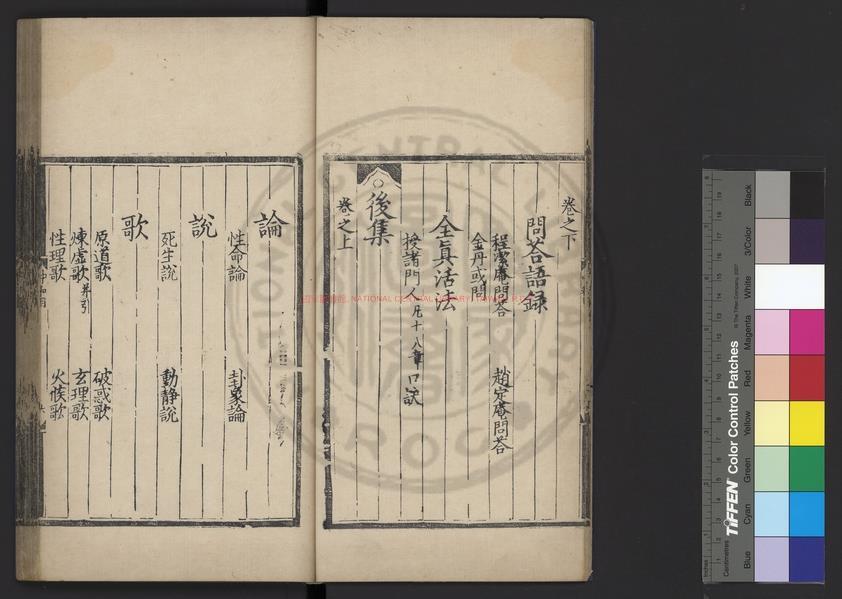 卷之下
問荅語録
程潔菴問荅 趙定菴問荅
金丹或問
全眞活法
授諸門人凡十八章口訣
後集
卷之上
論
性命論 卦象論
說
死生說 動静說
歌
原道歌 破惑歌
煉虛歌并引 玄理歌
性理歌 火候歌
NATIONAL CENTRAL LIBRARY
TIFFEN Color Control Patches
© The Tiffen Company, 2007
Inches
Centimetres
Blue
Cyan
Green
Yellow
Red
Magenta
White
3/Color
Black